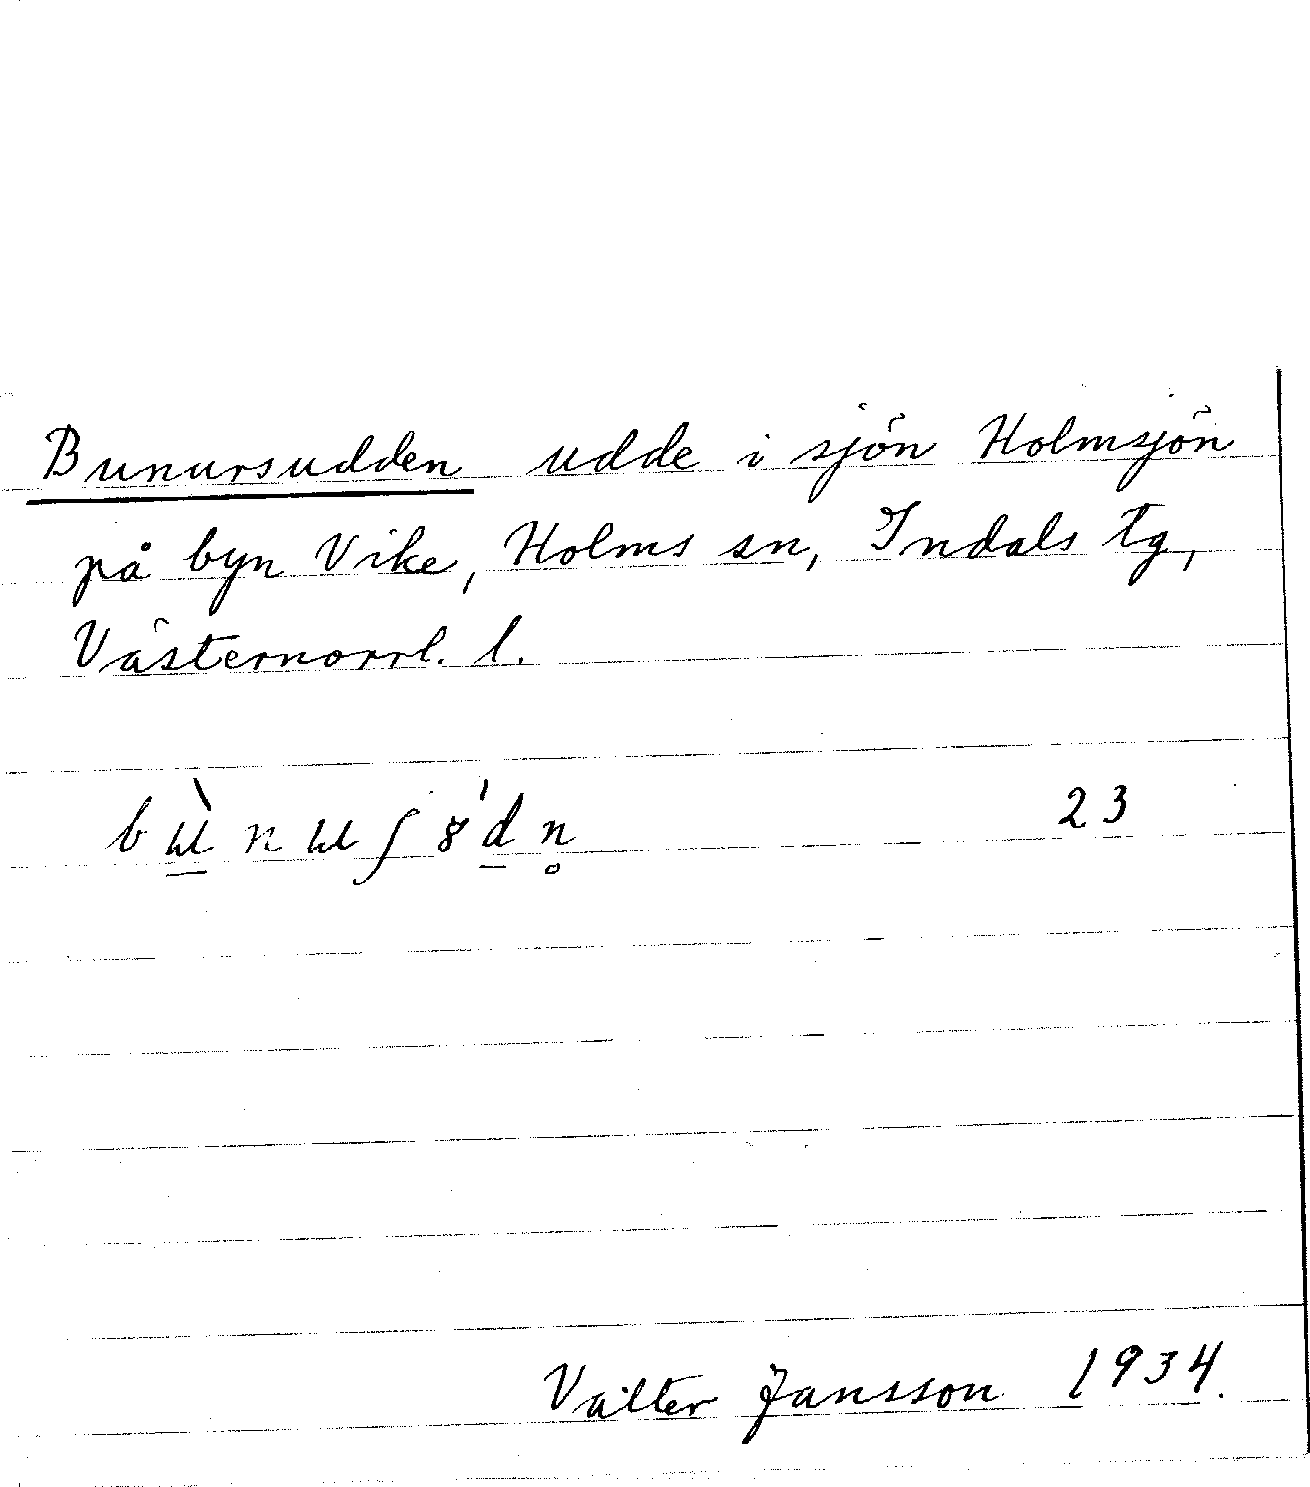 Bunursudden udde i sjön Holmsjön
på byn Vike, Holms sn, Indals tg,
Västernorrl. l.
23
Valter Jansson 1934.